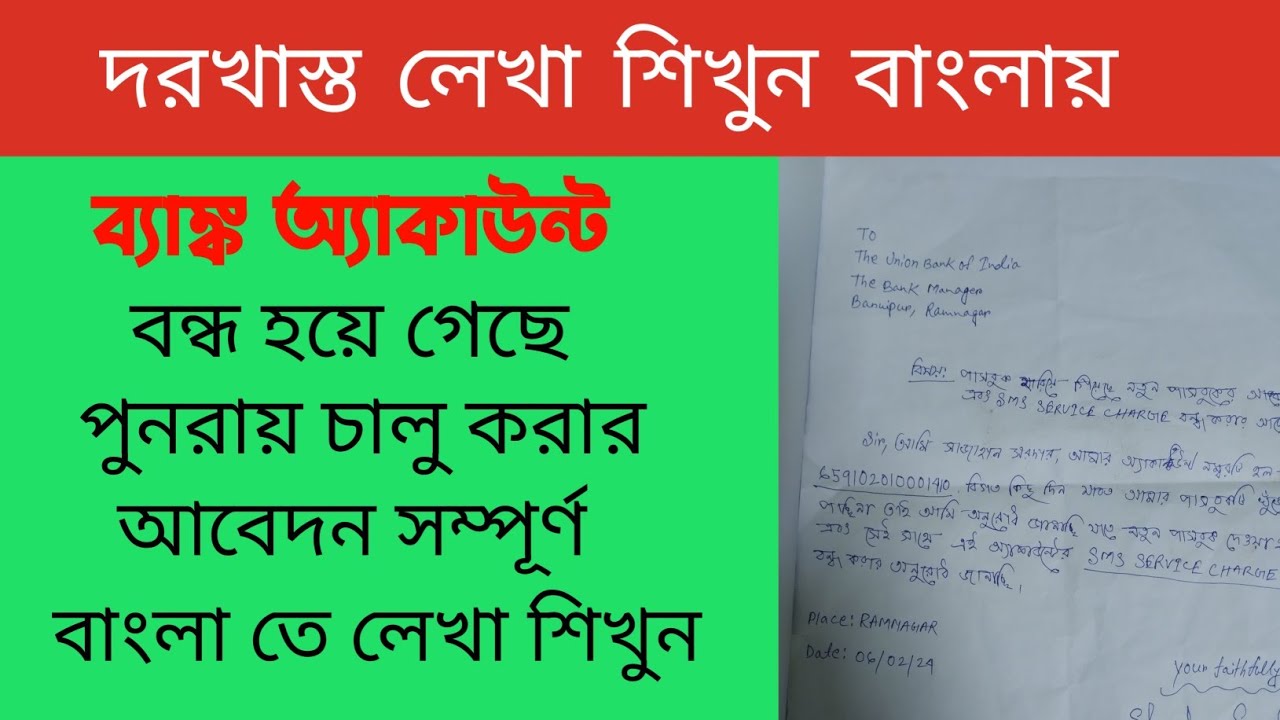 দরখাস্ত লেখা শিখুন বাংলায়
ব্যাঙ্ক অ্যাকাউন্ট
বন্ধ হয়ে গেছে
পুনরায় চালু করার
আবেদন সম্পূর্ণ
বাংলা তে লেখা শিখুন
To
The Union Bank of India
The Bank Manager
Ramnagar
বিষয়: পাসবুক হারিয়ে গিয়েছে নতুন পাসবুকের
এবং SMS SERVICE CHARGE বন্ধ করার
Sir, আমি সরদার, আমার অ্যাকাউন্ট নম্বরটি হল
659102010001410. বিগত কিছু দিন যাবত আমার পাসবুকটি
পাচ্ছিনা তাই আমি অনুরোধ জানাচ্ছি যাতে নতুন পাসবুক দেওয়া
এবং সেই সাথে এই অ্যাকাউন্টের SMS SERVICE CHARGE
বন্ধ করার অনুরোধ জানাচ্ছি।
Place: RAMNAGAR
Date: 06/02/24
your faithfully